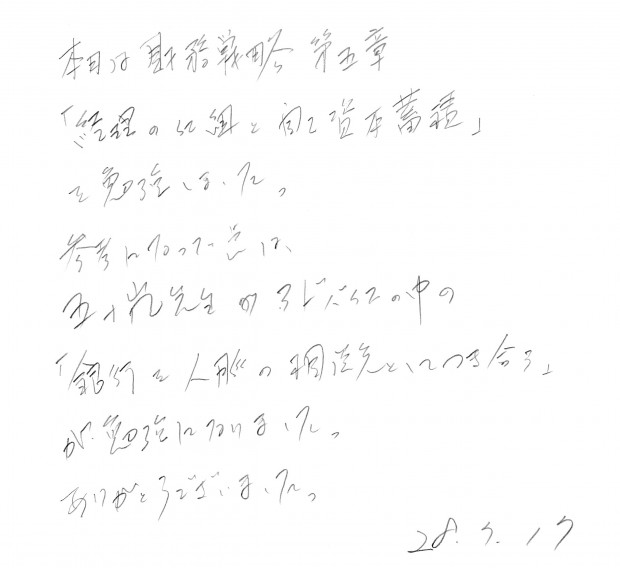 本日は財務戦略 第五章
「経理の仕組と自己資本蓄積」
を勉強しました。
参考になった点は、
五十嵐先生の
の中の
「銀行を人脈の相談先としてつき合う」
が勉強になりました。
ありがとうございました。
28. 5. 17